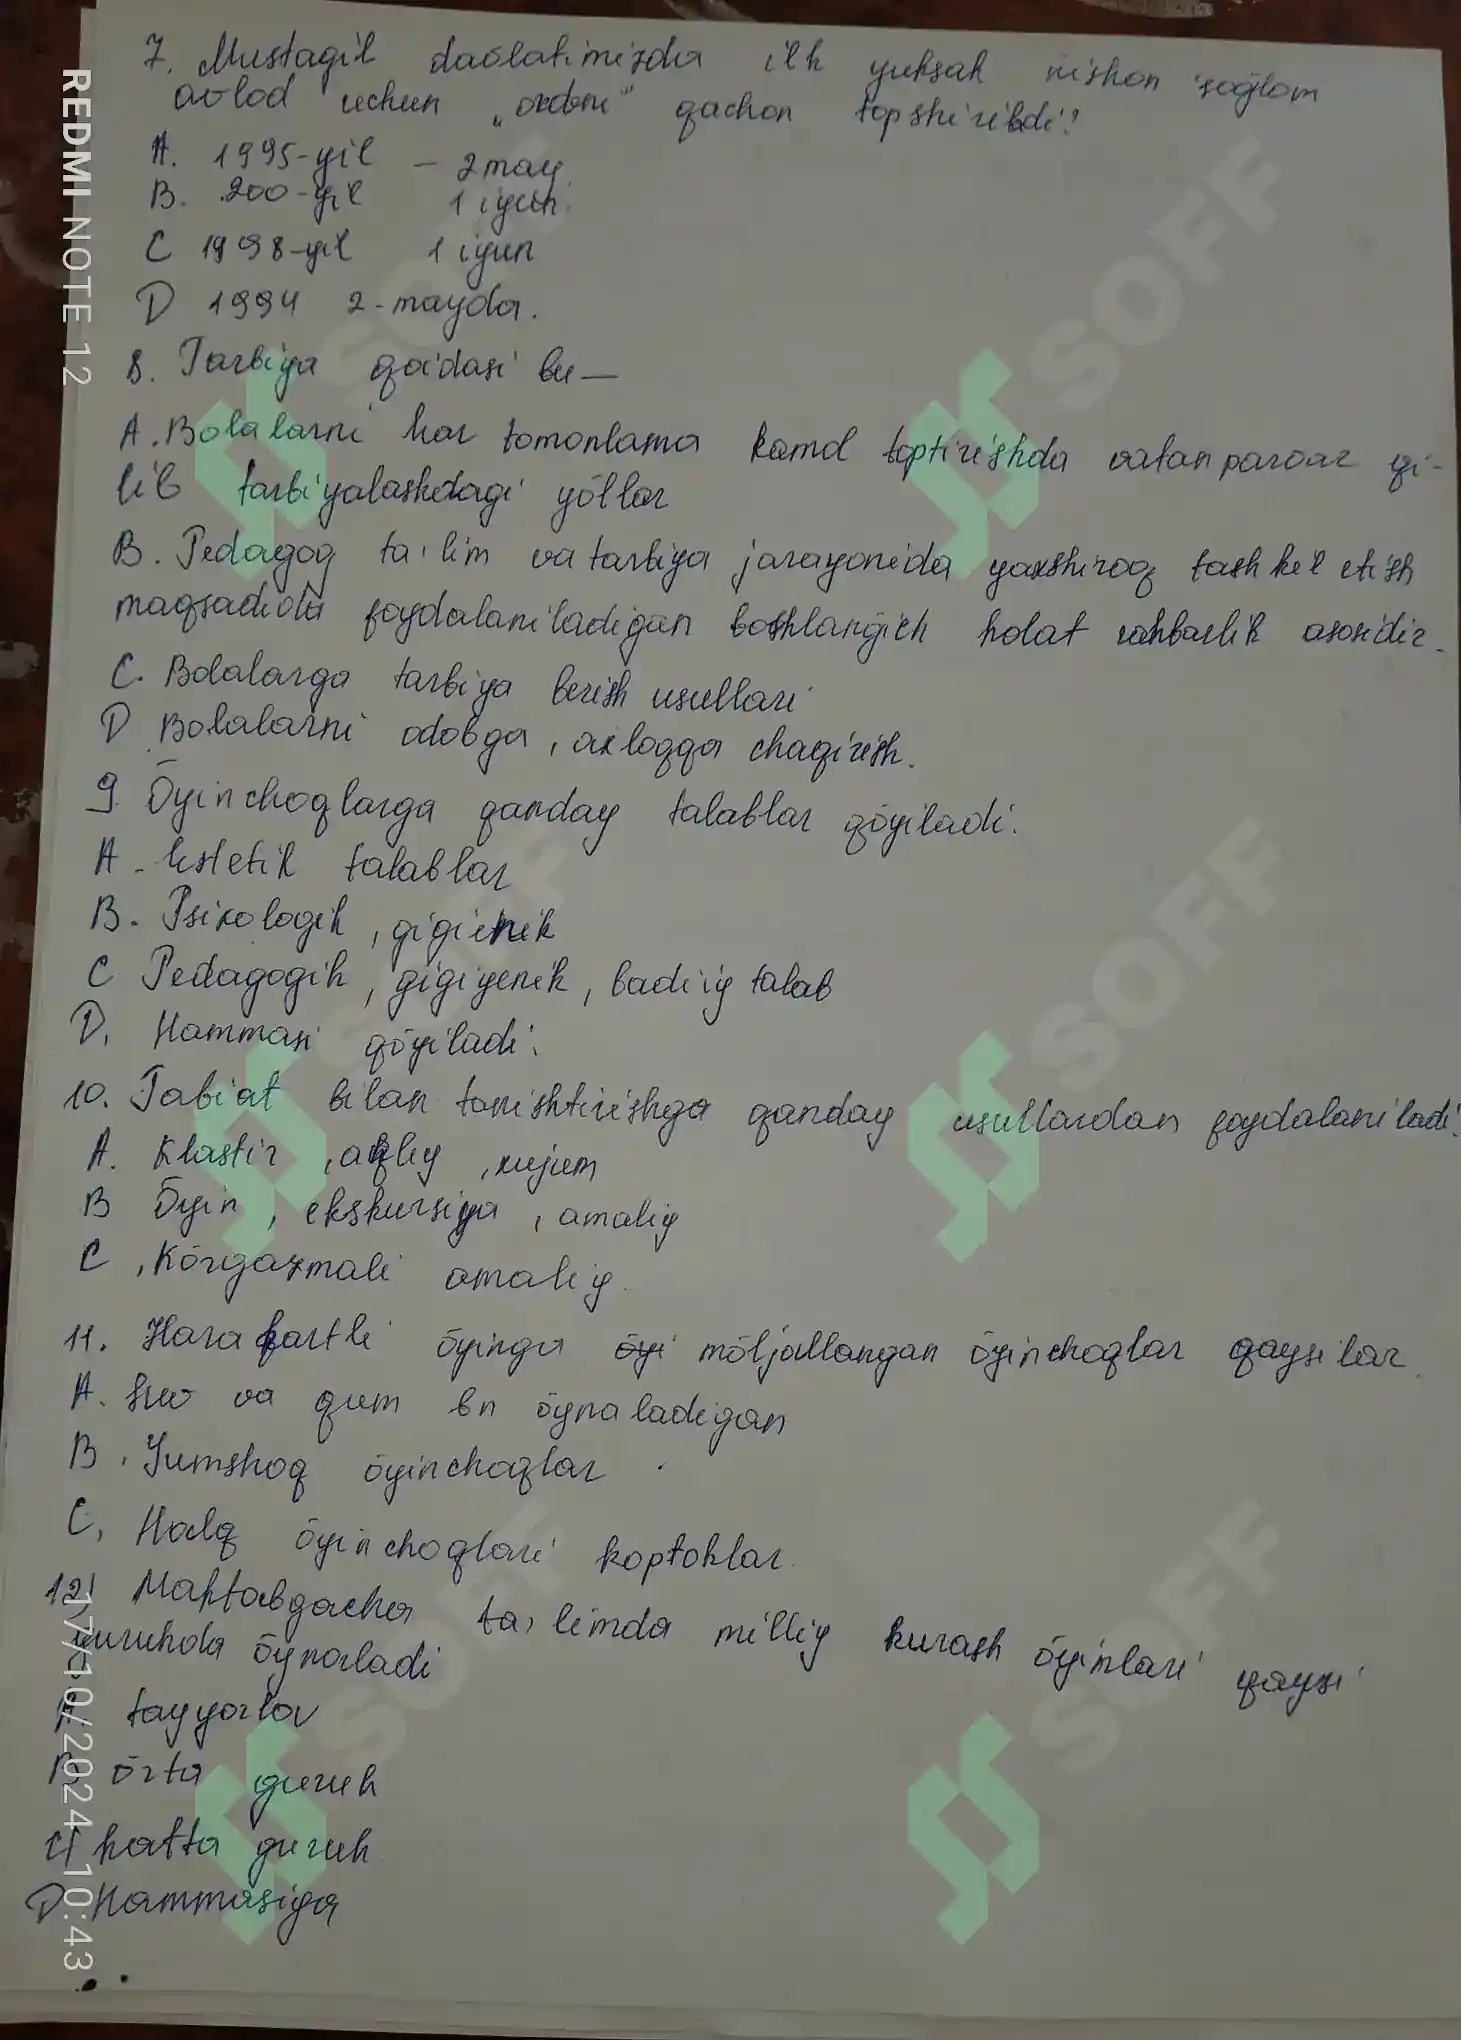 7. Mustaqil davlatimizda ilk yuksak nishon "soğlom
avlod uchun „ordeni" qachon topshirildi?
A. 1995-yil – 2 may
B. 200-yil 1 iyun
C 1998-yil 1 iyun
D 1994 2-mayda.
8. Tarbiya qoidasi bu—
A. Bolalarni har tomonlama kamol toptirishda vatanparvar qi-
lib tarbiyalashdagi yōllar
B. Pedagog ta'lim va tarbiya jarayonida yaxshiroq tashkil etish
maqsadida foydalaniladigan boshlanğich holat rahbarlik asosidir.
C. Bolalarga tarbiya berish usullari
D Bolalarni odobga, axloqqa chaqirish.
9. Ōyinchoqlarga qanday talablar qōyiladi.
A. Estetik talablar
B. Psixologik, gigienik
C Pedagogik, gigiyenik, badiiy talab
D. Hammasi qōyiladi.
10. Tabiat bilan tanishtirishga qanday usullardan foydalaniladi?
A. Klastir, aqliy, xujum
B Ōyin, ekskursiya, amaliy
C, Kōrgazmali amaliy.
11. Harakartli ōyinga ōyi mōljallangan ōyinchoqlar qaysilar.
A. Suv va qum bn ōynaladigan
B. Yumshoq ōyinchoqlar
C, Halq ōyinchoqlari koptoklar.
12) Maktabgacha ta'limda milliy kurash ōyinlari qaysi
guruhda ōynaladi
A tayyorlov
B ōrta guruh
C katta guruh
D Hammasiga
REDMI NOTE 12
17/10/2024 10:43
SOFF
SOFF
SOFF
SOFF
SOFF
SOFF